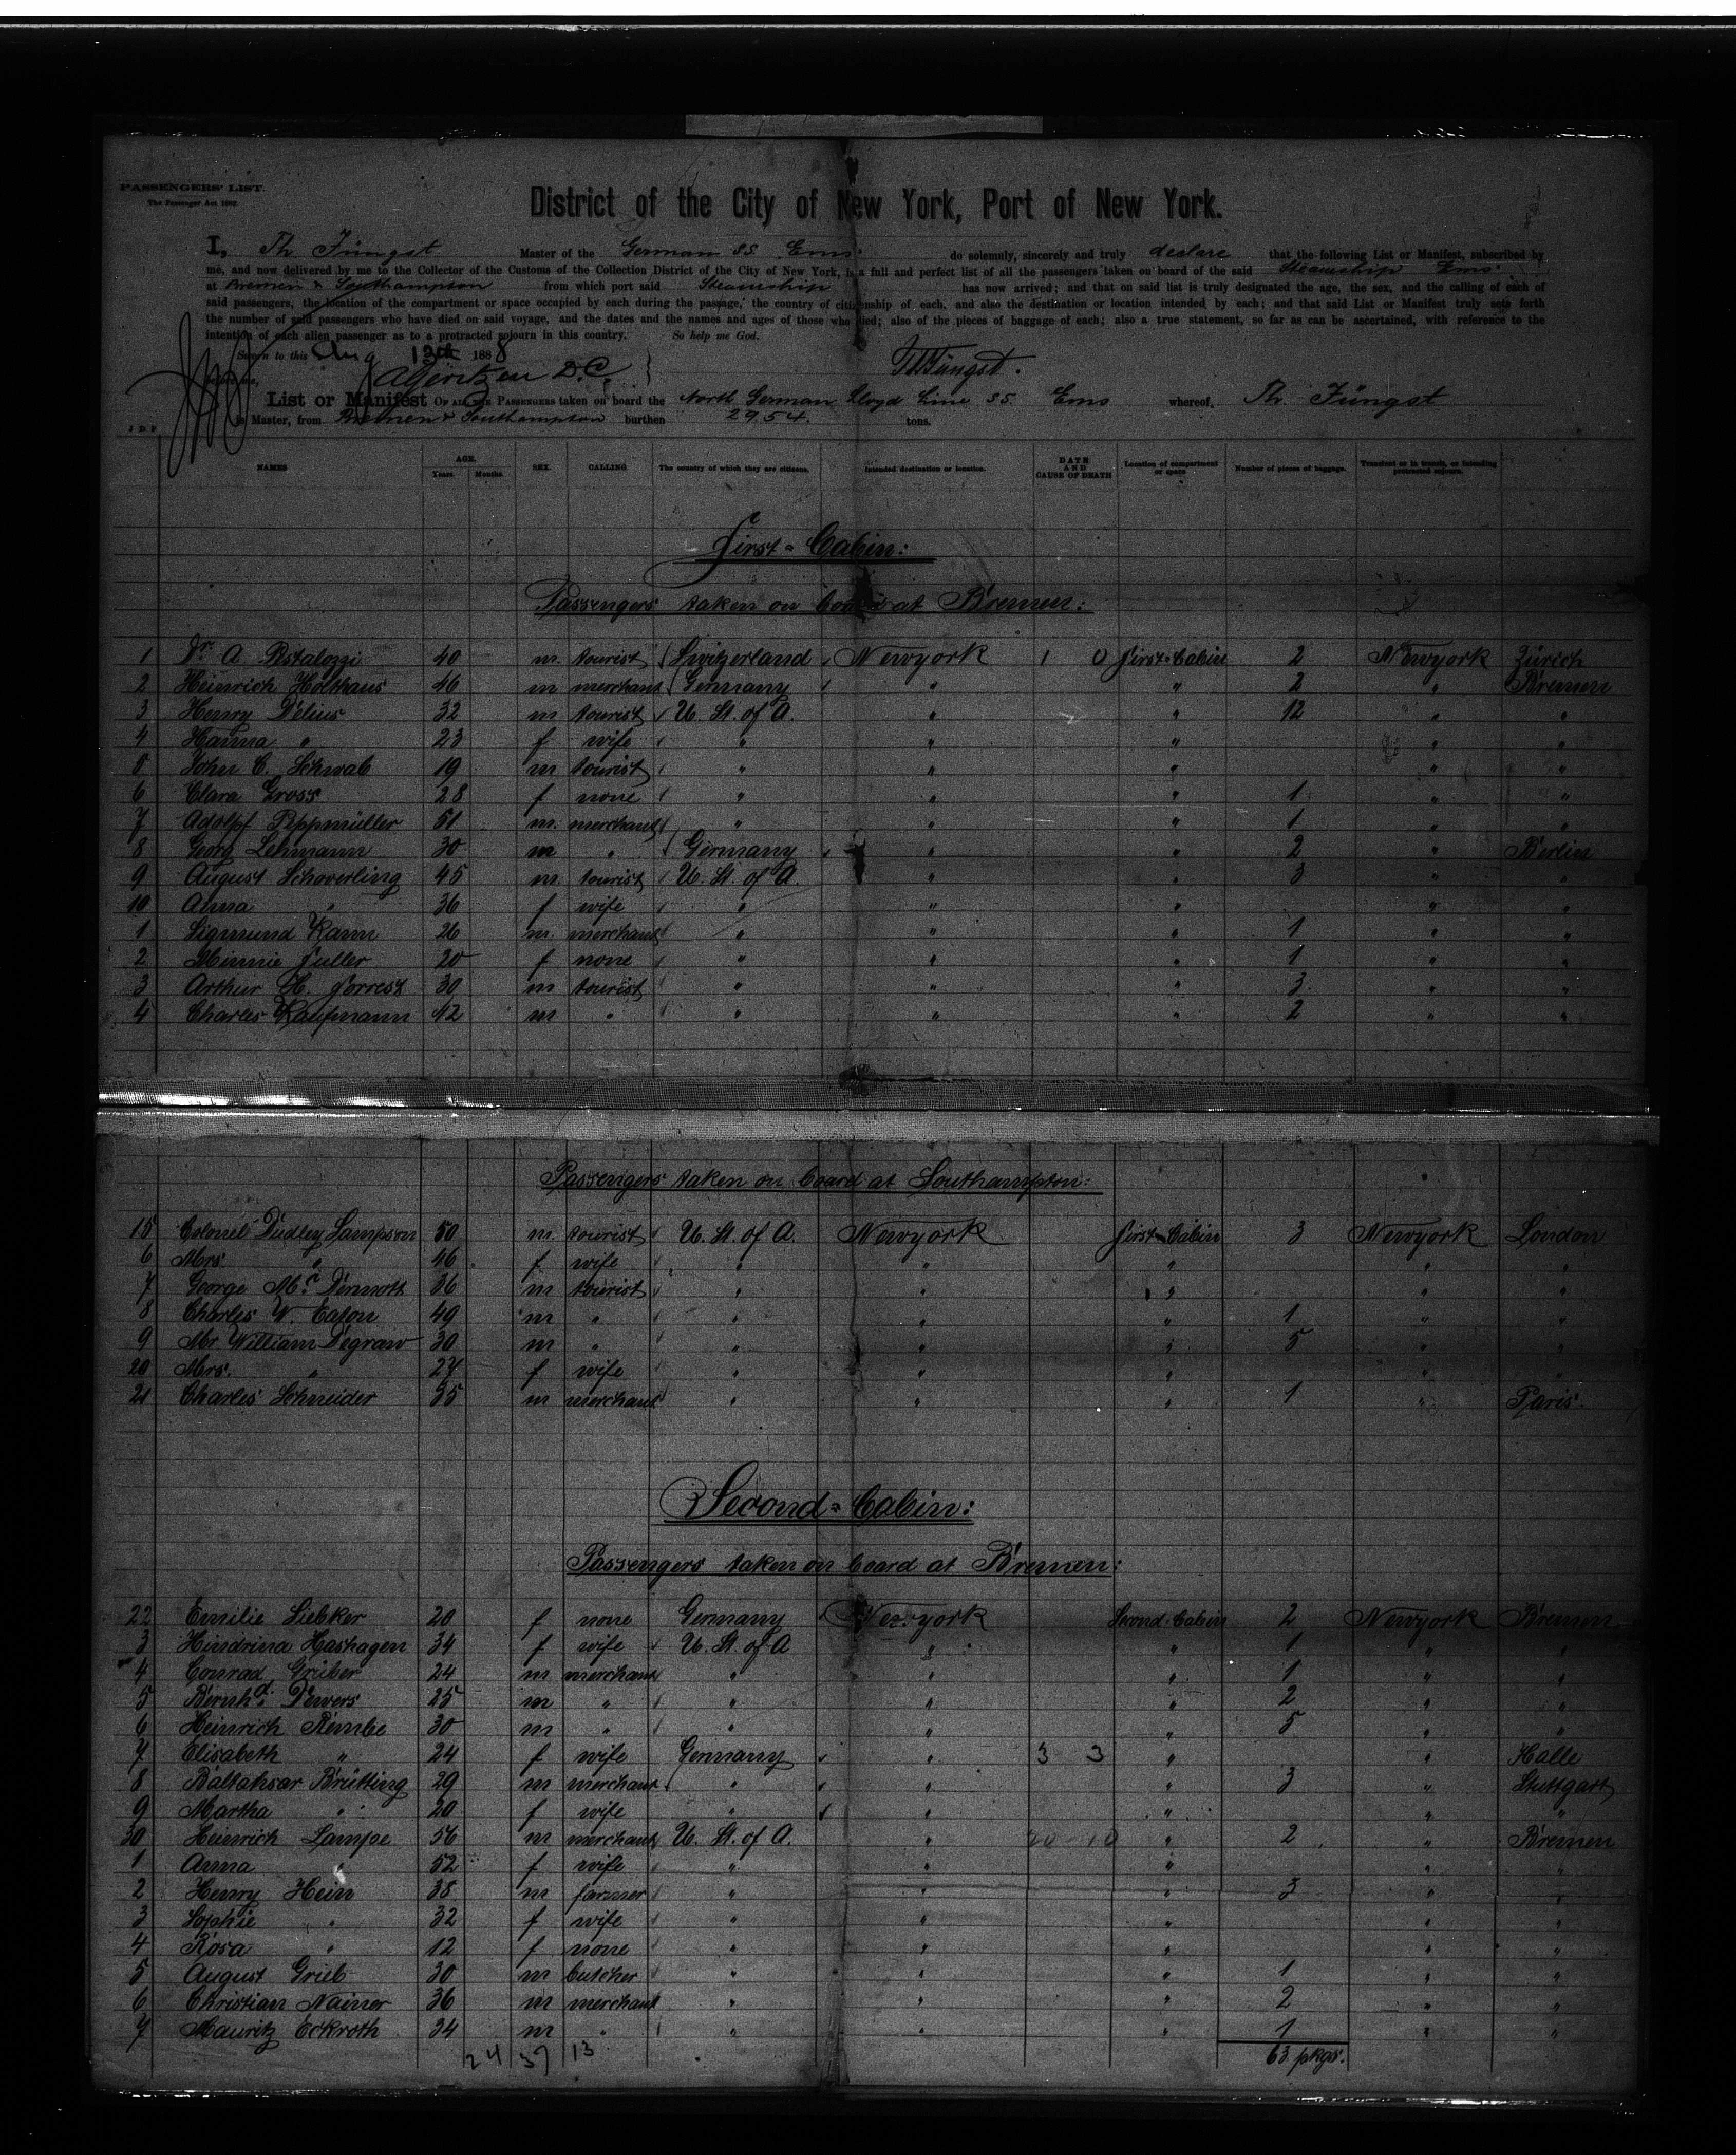 PASSENGERS' LIST.
The Passenger Act 1882.
District of the City of New York, Port of New York.
I, Th. Jüngst Master of the German SS. Ems do solemnly, sincerely and truly declare that the following List or Manifest, subscribed by
me, and now delivered by me to the Collector of the Customs of the Collection District of the City of New York, is a full and perfect list of all the passengers taken on board of the said Steamship Ems
at Bremen & Southampton from which port said Steamship has now arrived; and that on said list is truly designated the age, the sex, and the calling of each of
said passengers, the location of the compartment or space occupied by each during the passage, the country of citizenship of each, and also the destination or location intended by each; and that said List or Manifest truly sets forth
the number of said passengers who have died on said voyage, and the dates and the names and ages of those who died; also of the pieces of baggage of each; also a true statement, so far as can be ascertained, with reference to the
intention of each alien passenger as to a protracted sojourn in this country. So help me God.
Sworn to this Aug 13th 1888
Th Jüngst.
List or Manifest OF ALL THE PASSENGERS taken on board the North German Lloyd Line SS. Ems whereof, Th. Jüngst
is Master, from Bremen & Southampton burthen 2954. tons.
NAMES AGE. Years. Months. SEX. CALLING. The country of which they are citizens. Intended destination or location. DATE AND CAUSE OF DEATH Location of compartment or space Number of pieces of baggage. Transient or in transit, or intending protracted sojourn.
First-Cabin:
Passengers taken on board at Bremen:
1 Dr. A Pestalozzi 40 m. tourist Switzerland Newyork 1 0 First-Cabin 2 Newyork Zürich
2 Heinrich Holthaus 46 m merchant Germany " " 2 " Bremen
3 Henry Delius 32 m tourist U. St. of A. " " 12 " "
4 Hanna " 23 f wife " " " " "
5 John C. Schwab 19 m tourist " " " " "
6 Clara Gross 28 f none " " " 1 " "
7 Adolf Peppmüller 51 m. merchant " " " 1 " "
8 Georg Lehmann 30 m " Germany " " 2 " Berlin
9 August Schoverling 45 m. tourist U. St. of A. " " 3 " "
10 Alma " 36 f wife " " " " "
1 Sigmund Kann 26 m. merchant " " " 1 " "
2 Minnie Fuller 20 f none " " " 1 " "
3 Arthur H. Forrest 30 m tourist " " " 3 " "
4 Charles Kaufmann 42 m " " " " 2 " "
Passengers taken on board at Southampton:
15 Colonel Dudley Sampson 50 m. tourist U. St. of A. Newyork First-Cabin 3 Newyork London
6 Mrs. " 46 f wife " " " " "
7 George Mc. Dermott 36 m tourist " " " " "
8 Charles W. Eaton 49 m " " " " 1 " "
9 Mr William Degraw 30 m " " " " 5 " "
20 Mrs. " 27 f wife " " " " "
21 Charles Schneider 35 m merchant " " " 1 " Paris.
Second-Cabin:
Passengers taken on board at Bremen:
22 Emilie Liebker 20 f none Germany Newyork Second-Cabin 2 Newyork Bremen
3 Hindrina Hashagen 34 f wife U. St. of A " " 1 " "
4 Conrad Gruber 24 m merchant " " " 1 " "
5 Bernhd. Dewers 25 m " " " " 2 " "
6 Heinrich Rembe 30 m " " " " 5 " "
7 Elisabeth " 24 f wife Germany " 3 3 " " Halle
8 Baltahsar Brütting 29 m merchant " " " 3 " Stuttgart
9 Martha " 20 f wife " " " " "
30 Heinrich Lampe 56 m merchant U. St. of A. " 20 10 " 2 " Bremen
1 Anna " 52 f wife " " " " "
2 Henry Hein 38 m farmer " " " 3 " "
3 Sophie " 32 f wife " " " " "
4 Rosa " 12 f none " " " " "
5 August Grieb 30 m butcher " " " 1 " "
6 Christian Nainer 36 m merchant " " " 2 " "
7 Mauritz Eckroth 34 m " " " " 1 " "
24 37 13 63 pkgs.